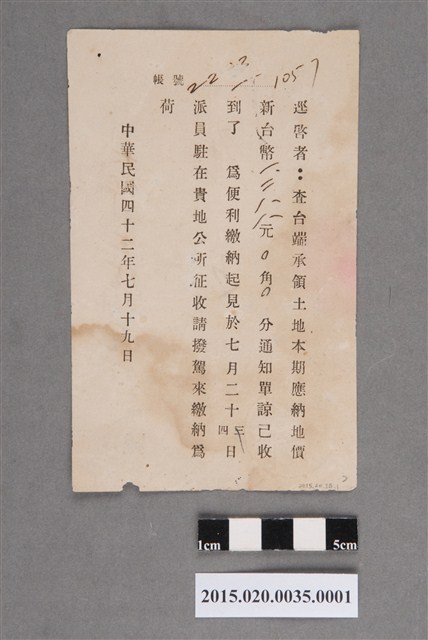 帳號 1057
逕啓者：查台端承領土地本期應納地價
新台幣 元0角0分通知單諒已收
到了 爲便利繳納起見於七月二十三四日
派員駐在貴地公所征收請撥駕來繳納爲
荷
中華民國四十二年七月十九日
1cm 5cm
2015.020.0035.0001